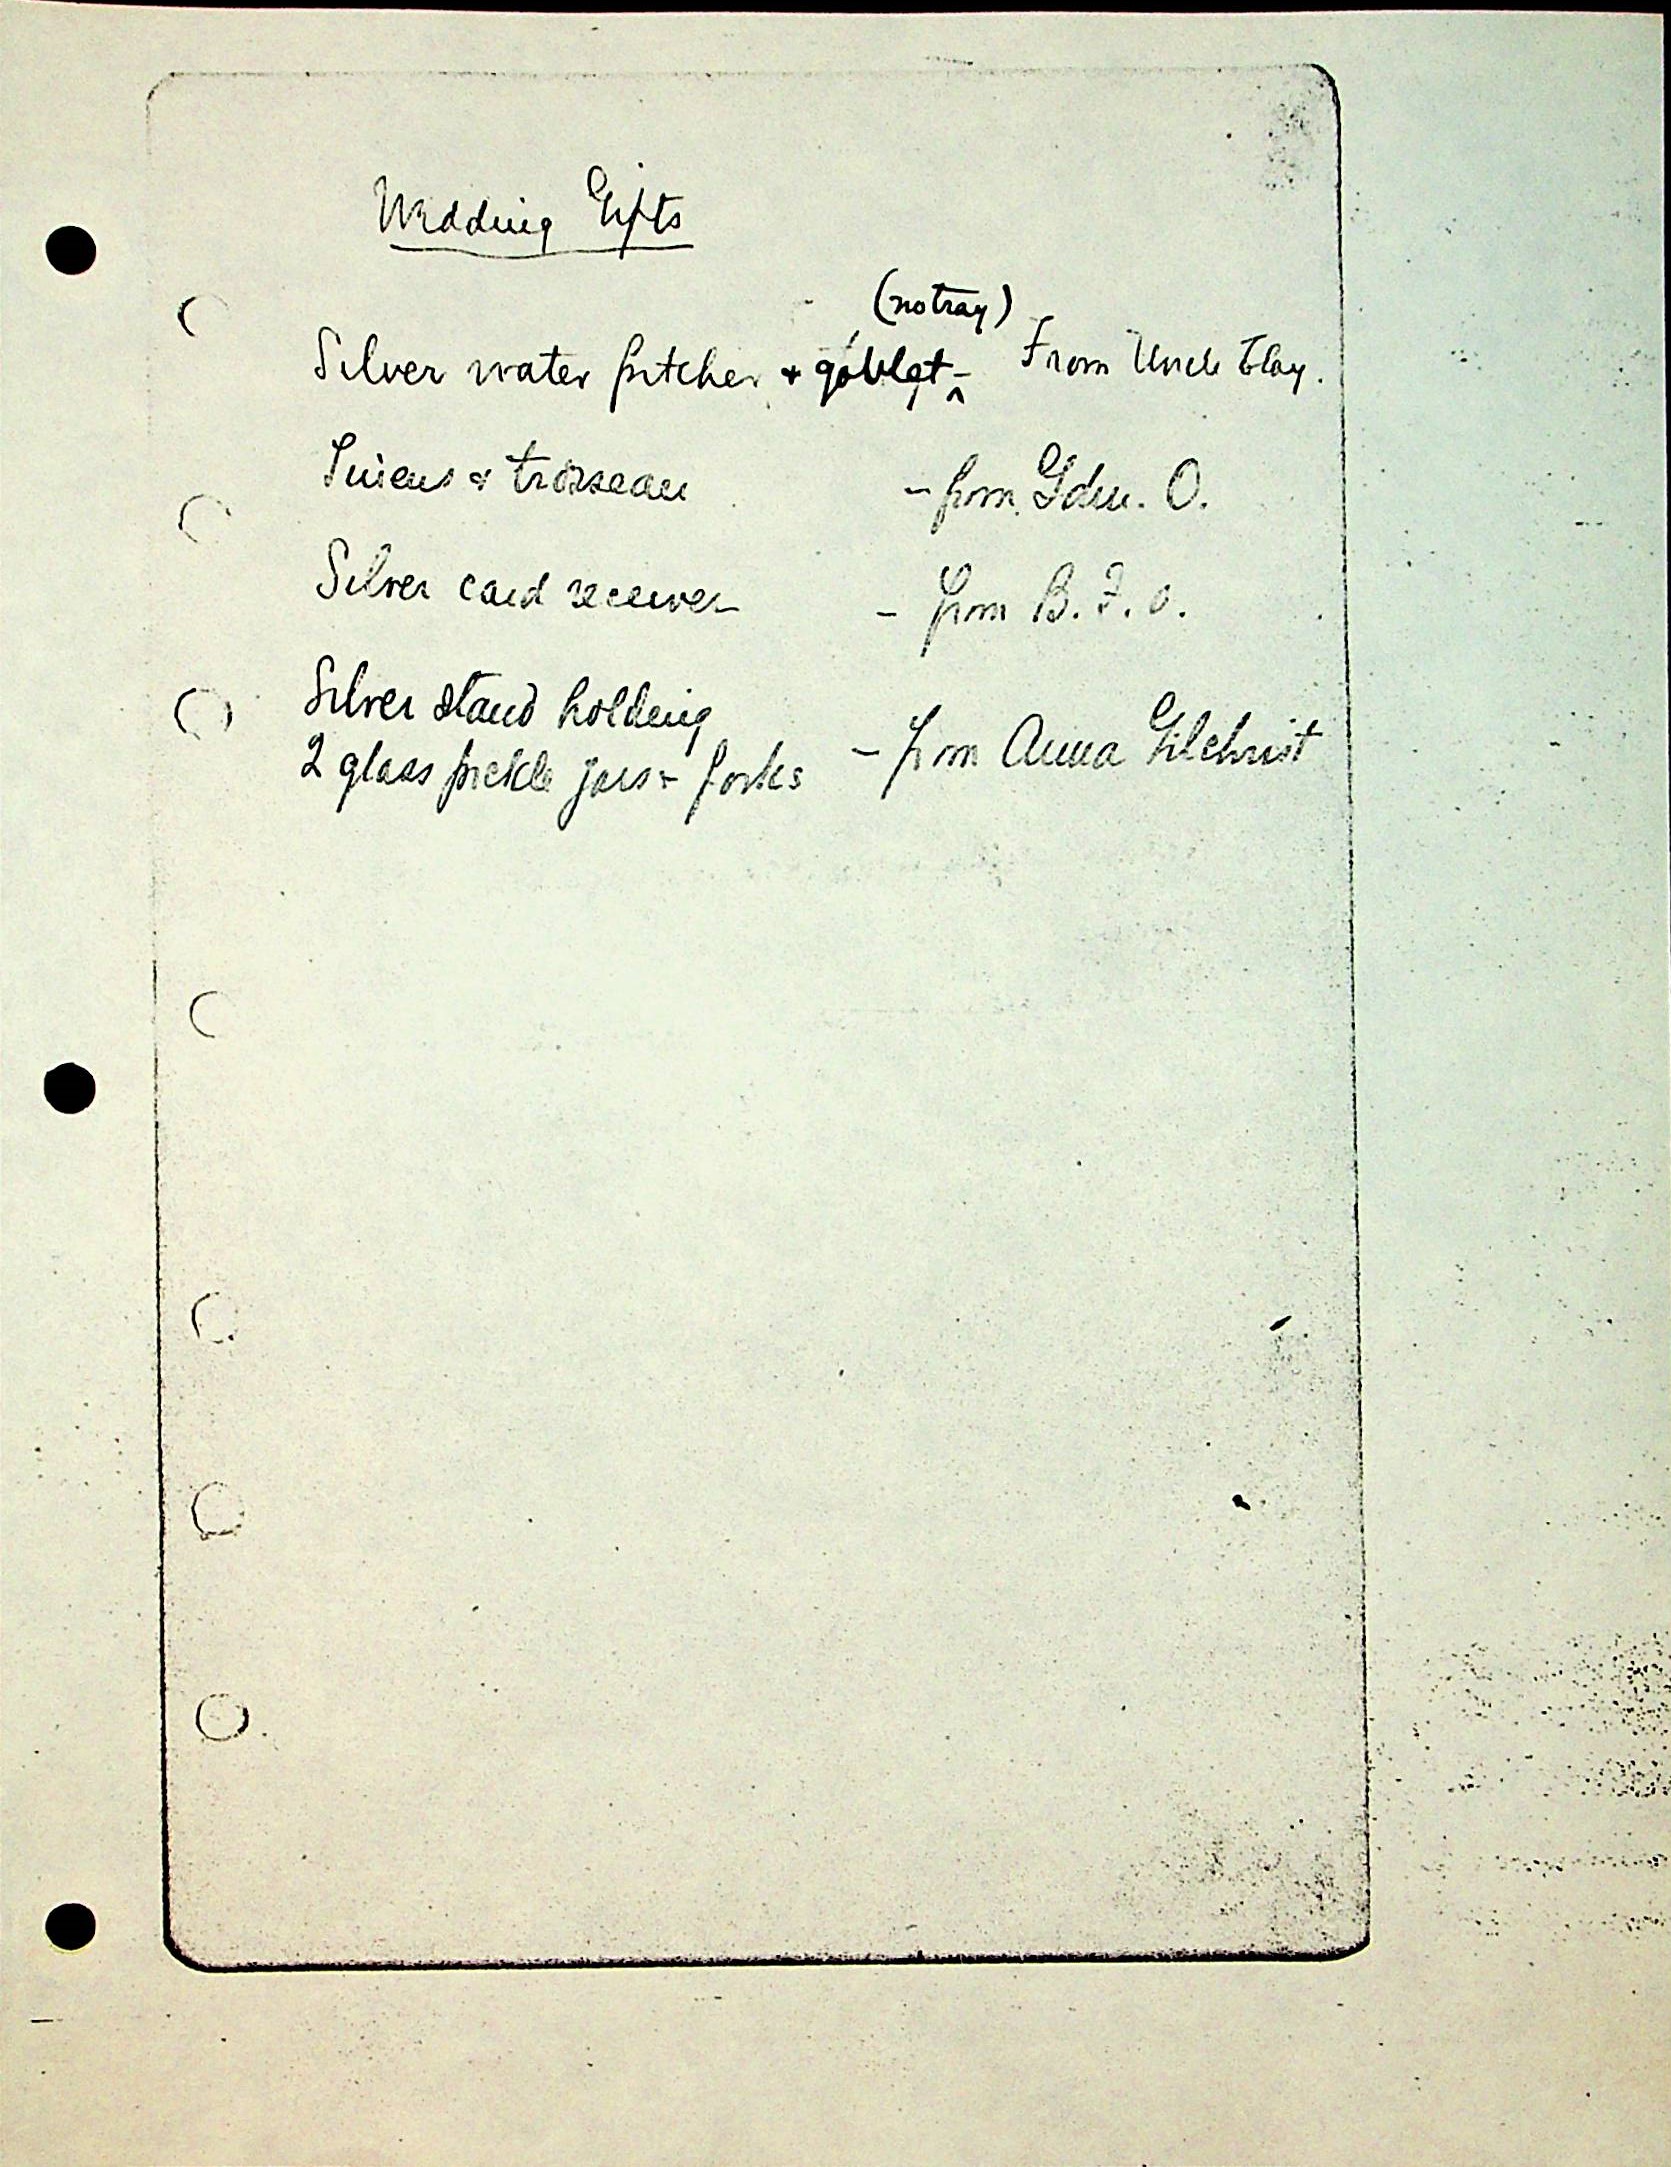 Wedding Gifts
(no tray)
Silver water pitcher + goblet - ^ From Uncle Clay.
Linens & trosseau - from Edw. O.
Silver card receiver - from B. F. O.
Silver stand holding
2 glass pickle jars + forks - from Anna Gilchrist